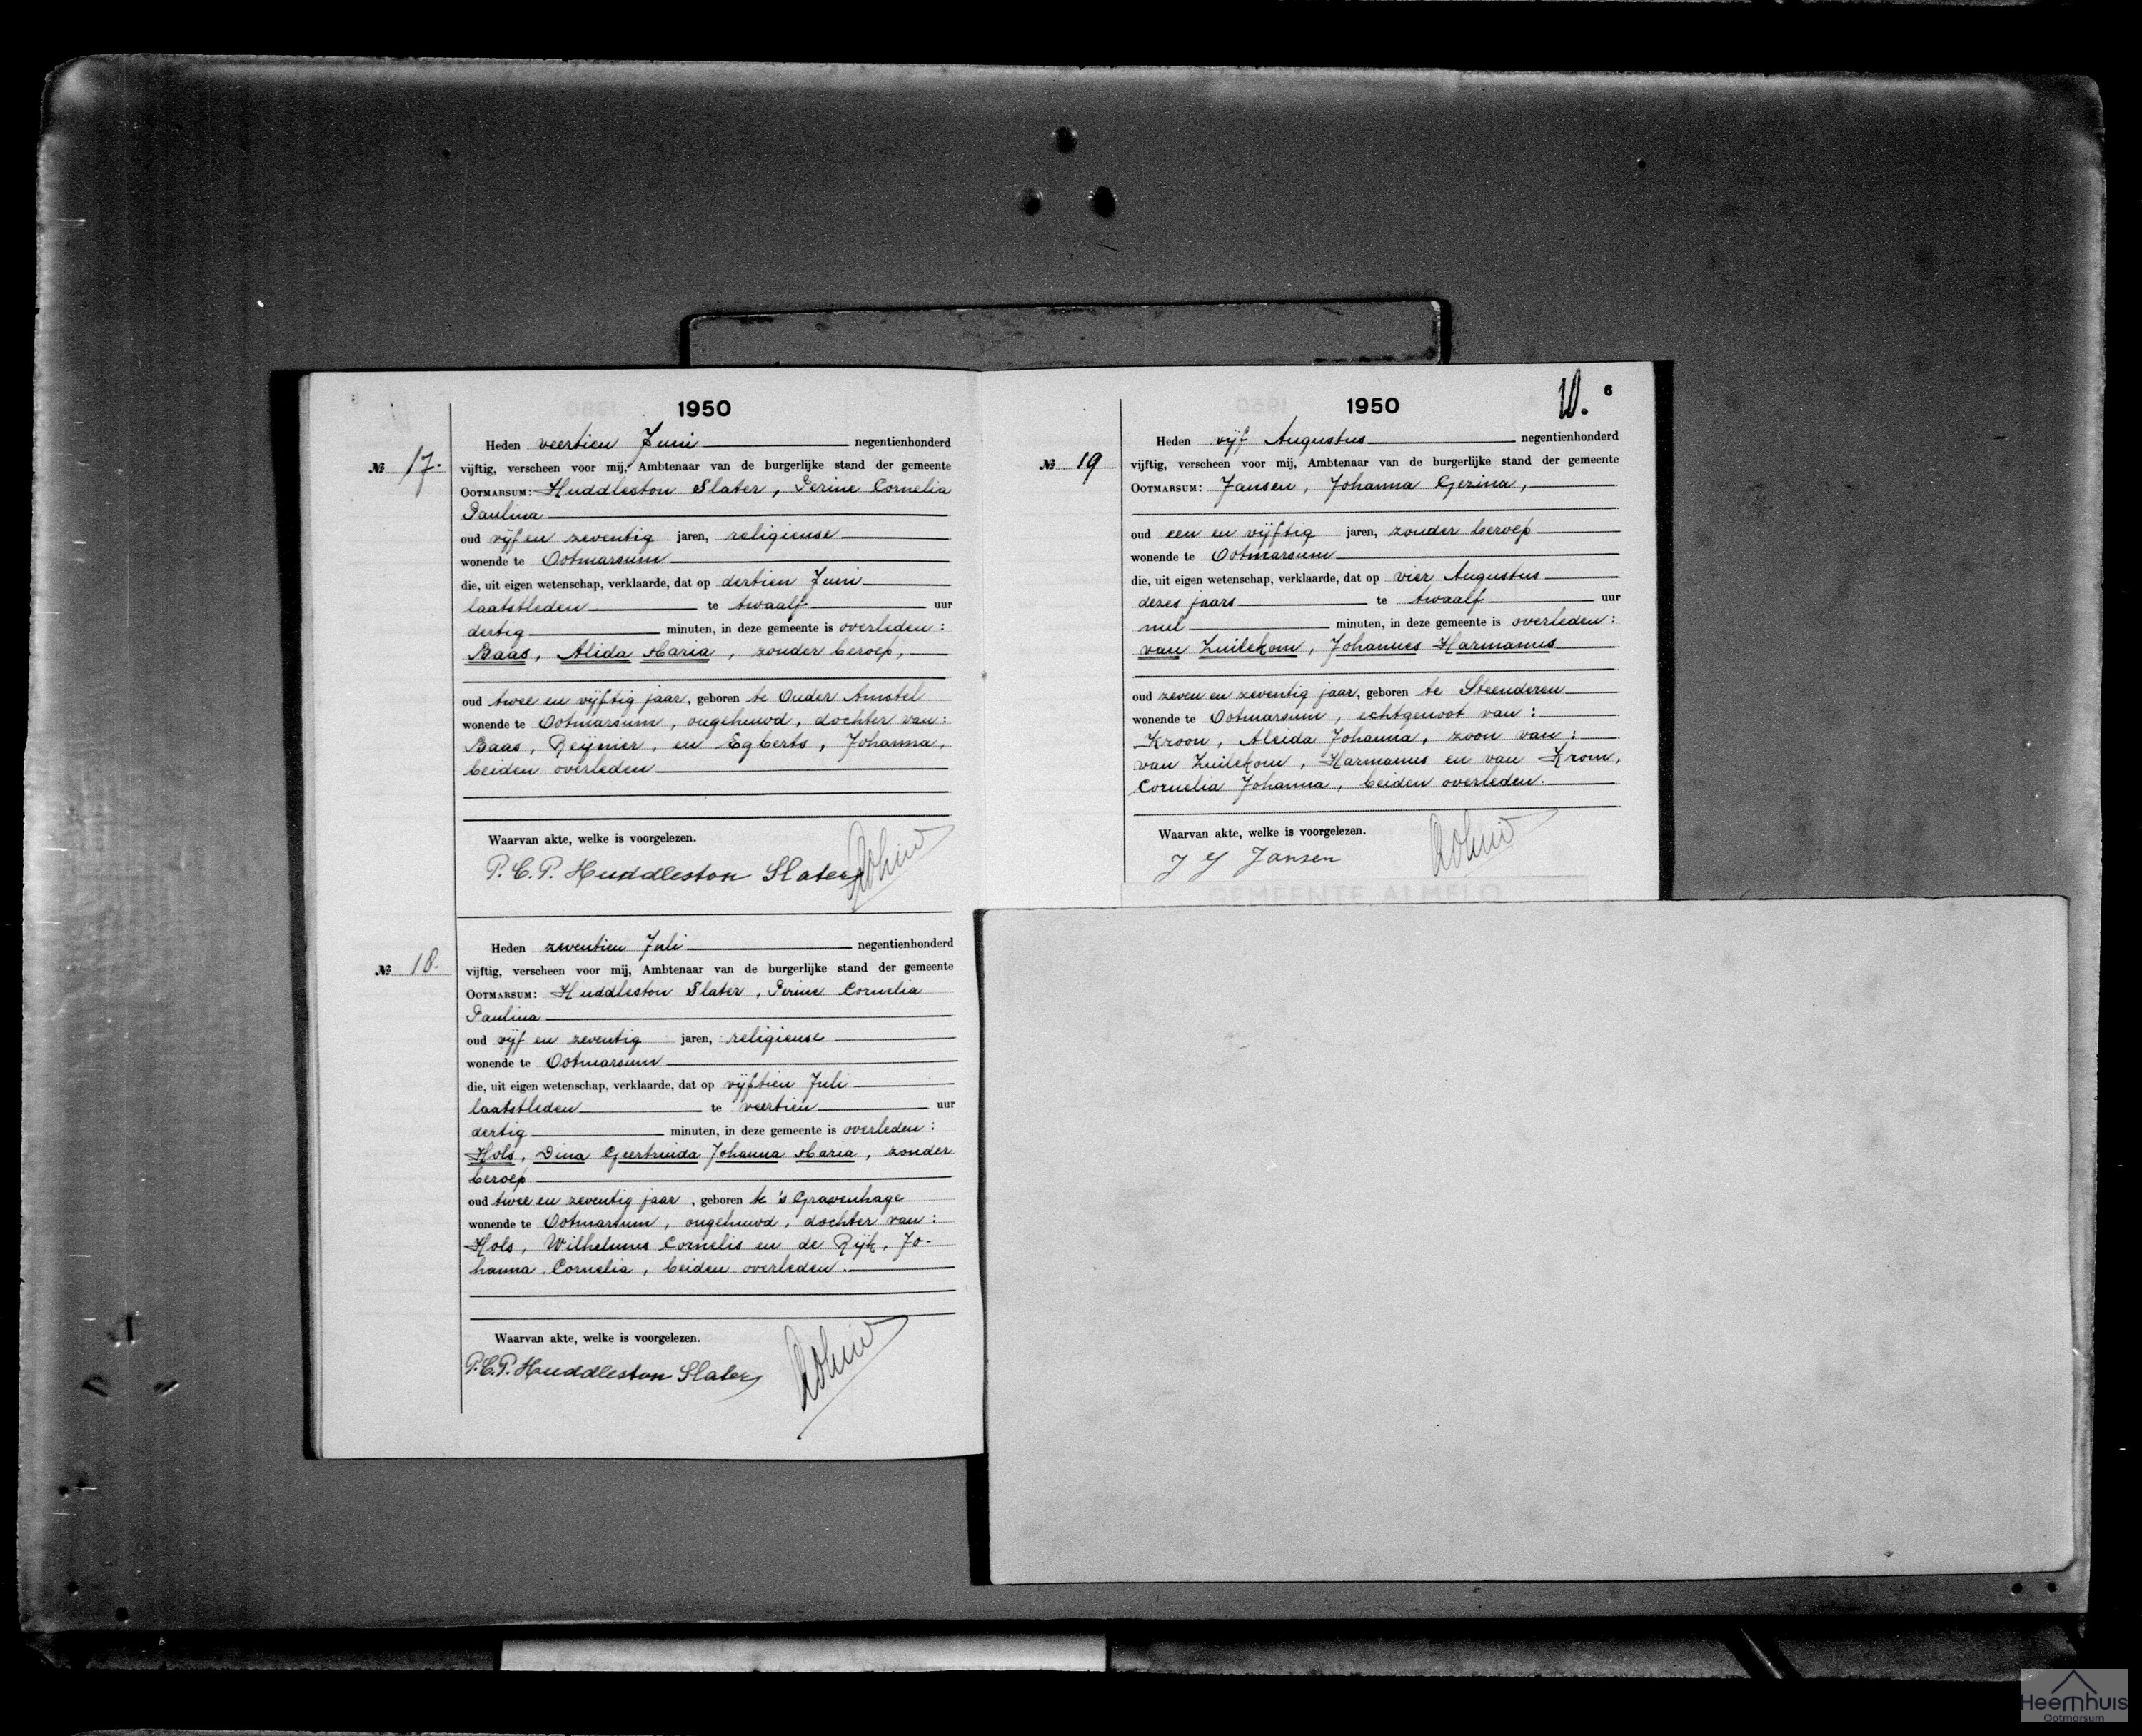 1950
Nº 17.
Heden veertien Juni negentienhonderd
vijftig, verscheen voor mij, Ambtenaar van de burgerlijke stand der gemeente
OOTMARSUM: Huddleston Slater, Perine Cornelia
Paulina
oud vijf en zeventig jaren, religieuse
wonende te Ootmarsum
die, uit eigen wetenschap, verklaarde, dat op dertien Juni
laatstleden te twaalf uur
dertig minuten, in deze gemeente is overleden:
Baas, Alida Maria, zonder beroep,
oud twee en vijftig jaar, geboren te Ouder Amstel
wonende te Ootmarsum, ongehuwd, dochter van:
Baas, Reijnier, en Egberts, Johanna,
beiden overleden
Waarvan akte, welke is voorgelezen.
P.C.P. Huddleston Slater
Nº 18.
Heden zeventien Juli negentienhonderd
vijftig, verscheen voor mij, Ambtenaar van de burgerlijke stand der gemeente
OOTMARSUM: Huddleston Slater, Perine Cornelia
Paulina
oud vijf en zeventig jaren, religieuse
wonende te Ootmarsum
die, uit eigen wetenschap, verklaarde, dat op vijftien Juli
laatstleden te veertien uur
dertig minuten, in deze gemeente is overleden:
Hols, Dina Geertruida Johanna Maria, zonder
beroep
oud twee en zeventig jaar, geboren te 's Gravenhage
wonende te Ootmarsum, ongehuwd, dochter van:
Hols, Wilhelmus Cornelis en de Rijk, Jo-
hanna Cornelia, beiden overleden.
Waarvan akte, welke is voorgelezen.
P.C.P. Huddleston Slater
1950
10. 6
Nº 19
Heden vijf Augustus negentienhonderd
vijftig, verscheen voor mij, Ambtenaar van de burgerlijke stand der gemeente
OOTMARSUM: Jansen, Johanna Gezina,
oud een en vijftig jaren, zonder beroep
wonende te Ootmarsum
die, uit eigen wetenschap, verklaarde, dat op vier Augustus
dezes jaars te twaalf uur
nul minuten, in deze gemeente is overleden:
van Zuilekom, Johannes Harmanus
oud zeven en zeventig jaar, geboren te Steenderen
wonende te Ootmarsum, echtgenoot van:
Kroon, Aleida Johanna, zoon van:
van Zuilekom, Harmanus en van Krom,
Cornelia Johanna, beiden overleden.
Waarvan akte, welke is voorgelezen.
J G Jansen
GEMEENTE ALMELO
Heemhuis
Ootmarsum